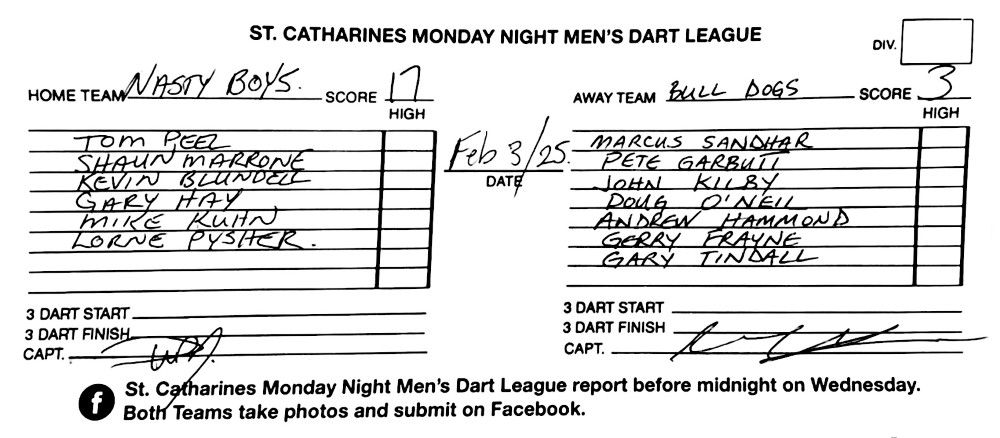 ST. CATHARINES MONDAY NIGHT MEN'S DART LEAGUE
DIV.
HOME TEAM NASTY BOYS. SCORE 17
HIGH
TOM PEEL
SHAUN MARRONE
KEVIN BLUNDELL
GARY HAY
MIKE KUHN
LORNE PYSHER.
Feb 3/25.
DATE
AWAY TEAM BULL DOGS SCORE 3
HIGH
MARCUS SANDHAR
PETE GARBUTT
JOHN KILBY
DOUG O'NEIL
ANDREW HAMMOND
GERRY FRAYNE
GARY TINDALL
3 DART START
3 DART FINISH
CAPT.
3 DART START
3 DART FINISH
CAPT.
f St. Catharines Monday Night Men's Dart League report before midnight on Wednesday.
Both Teams take photos and submit on Facebook.